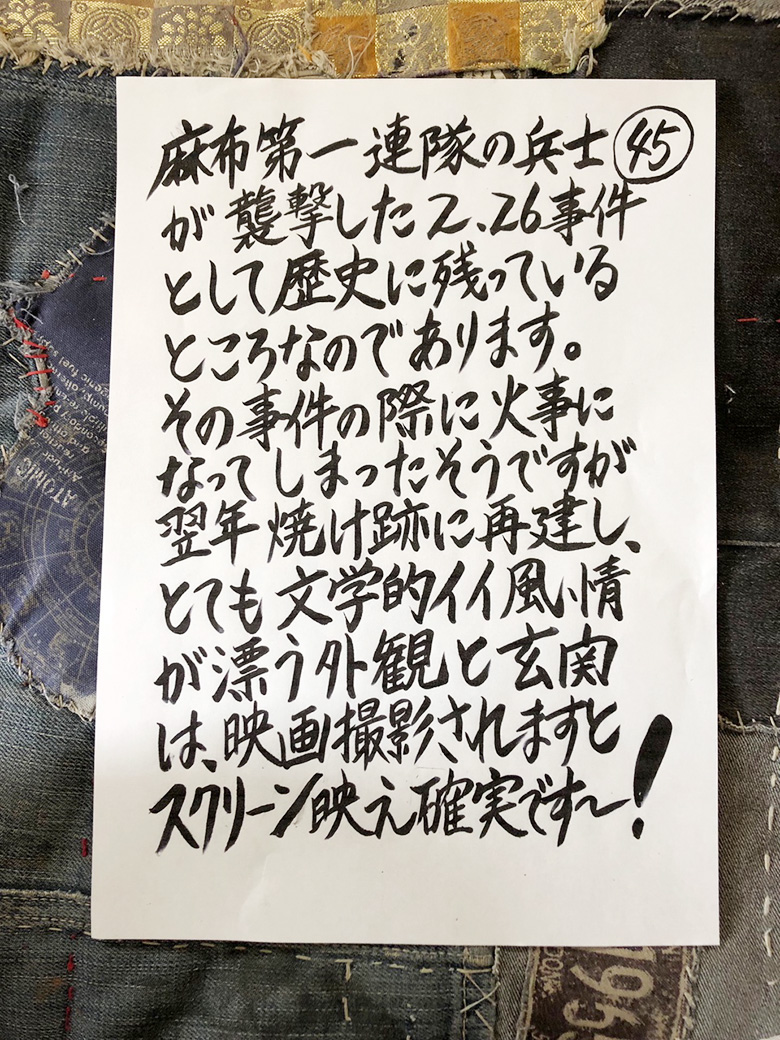 麻布第一連隊の兵士 45
が襲撃した2、26事件
として歴史に残っている
ところなのであります。
その事件の際に火事に
なってしまったそうですが
翌年焼け跡に再建し、
とても文学的イイ風情
が漂う外観と玄関
は、映画撮影されますと
スクリーン映え確実です〜!
ATOMIC